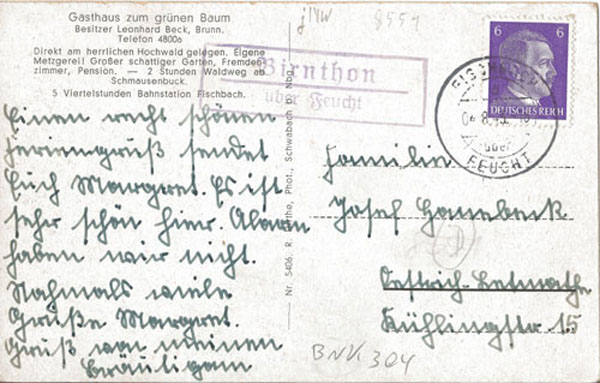 Gasthaus zum grünen Baum
Besitzer Leonhard Beck, Brunn.
Telefon 48006
Direkt am herrlichen Hochwald gelegen. Eigene
Metzgerei! Großer schattiger Garten, Fremden-
zimmer, Pension. — 2 Stunden Waldweg ab
Schmausenbuck.
5 Viertelstunden Bahnstation Fischbach.
Einen recht schönen
Feriengruß sendet
Euch Margret. Es ist
sehr schön hier. Alarm
haben wir nicht.
Nochmals viele
Grüße Margret.
Gruß von meinen
Bräutigam
Nr. 5406. R. Phot., Schwabach b. Nbg.
8551
Birnthon
über Feucht
6 6
DEUTSCHES REICH
über
FEUCHT
Familie
Josef Hanebeck
Oestrich-Letmathe
Kühlingstr. 15
BNK 304